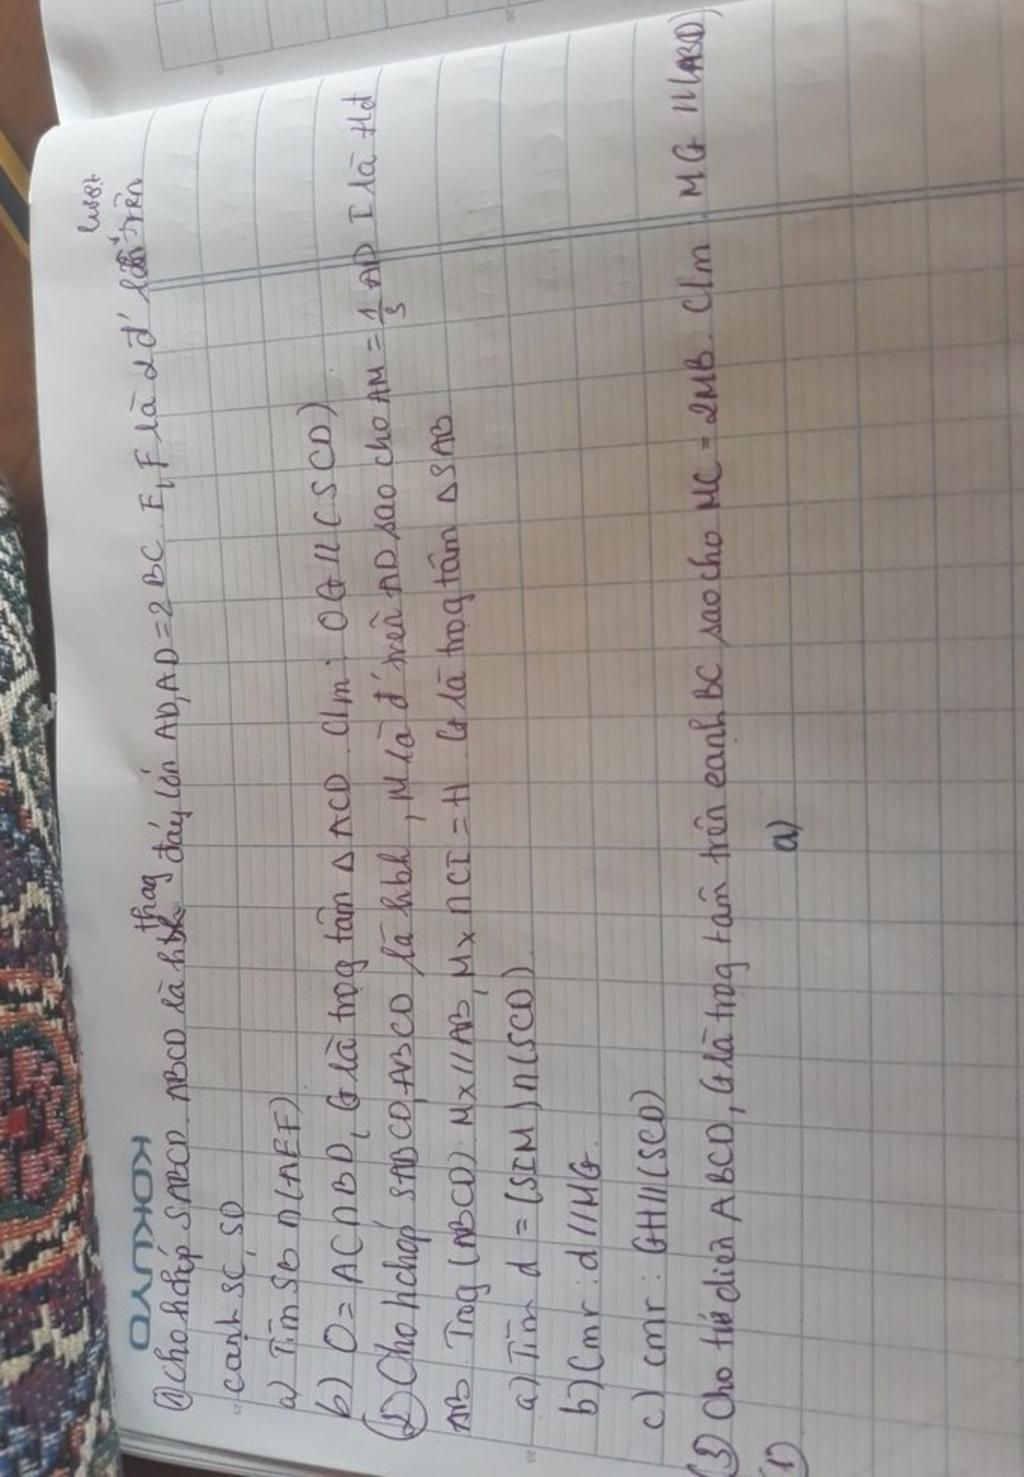 KOKUYO
① Cho hchóp SABCD. ABCD là hthag đáy lớn AD, AD = 2BC. E, F là 2 đ' lần lượt trên
cạnh SC, SD
a) Tìm SB ∩ (AEF)
b) O = AC ∩ BD, G là trọg tâm Δ ACD. C/m: OG // (SCD)
② Cho hchóp SABCD, ABCD là hbh, M là đ' trên AD sao cho AM = 1/3 AD I là tđ
AB. Trog (ABCD) Mx // AB, Mx ∩ CI = H G là trọg tâm Δ SAB
a) Tìm d = (SIM) ∩ (SCD).
b) Cmr: d // MG
c) cmr: GH // (SCD)
③ Cho tứ diện ABCD, G là trọg tâm trên cạnh BC sao cho MC = 2MB. C/m: MG // (ABD)
①
a)